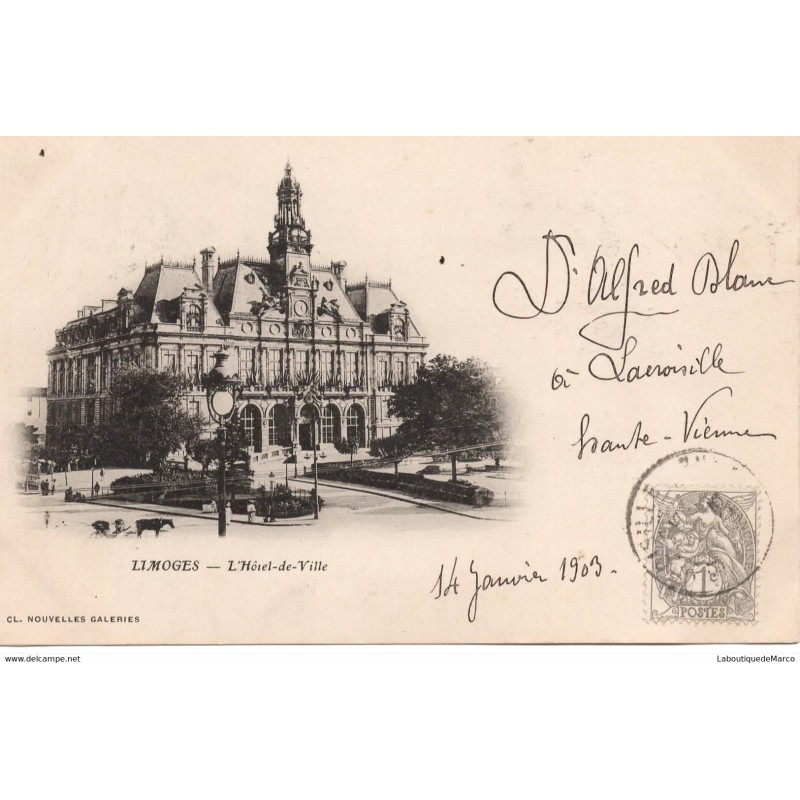 Dr Alfred Blanc
à Lacroisille
Haute-Vienne
14 Janvier 1903.
1c
POSTES
LIMOGES — L'Hôtel-de-Ville
CL. NOUVELLES GALERIES
www.delcampe.net
LaboutiquedeMarco